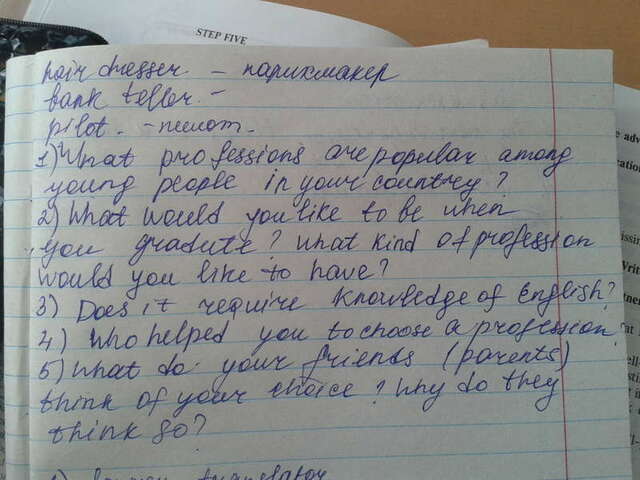 STEP FIVE
hair dresser - парикмахер
bank teller -
pilot. - пилот.
1) What professions are popular among
young people in your country?
2) What would you like to be when
you gradute? what kind of profession
would you like to have?
3) Does it require knowledge of English?
4) Who helped you to choose a profession
5) What do your friends (parents)
think of your choice? Why do they
think so?
translator